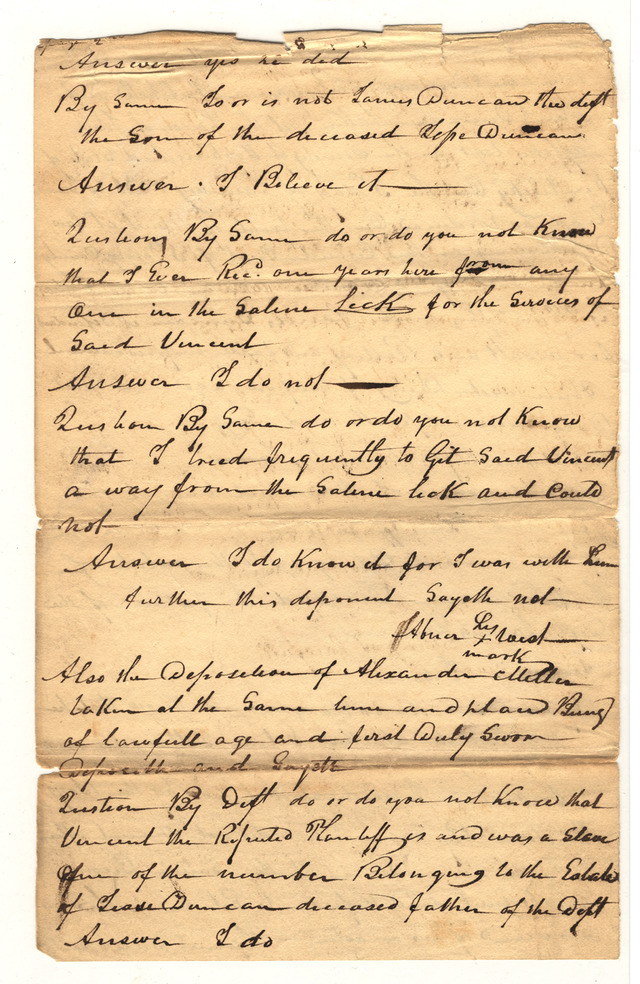 page 2
Answer yes he did
By Same Do or is not James Duncan the deft
the Son of the deceased Jesse Duncan
Answer. I Believe it
Question By Same do or do you not Know
that I Ever Recd. one years hire from any
One in the Saline Lick for the Services of
Said Vincent
Answer I do not
Question By Same do or do you not Know
that I tried frequently to Git Said Vincent
a way from the Saline lick and Could
not
Answer I do Know it for I was with him
further this deponent Sayeth not
Abner his x West
mark
Also the Deposition of Alexander Miller
taken at the Same time and place Being
of lawfull age and first Duly Sworn
Deposeth and Sayeth
Qustion By Deft do or do you not Know that
Vincent the Reputed Plantiff is and was a Slave
One of the number Belonging to the Estate
of Duncan deceased father of the Deft
Answer I do